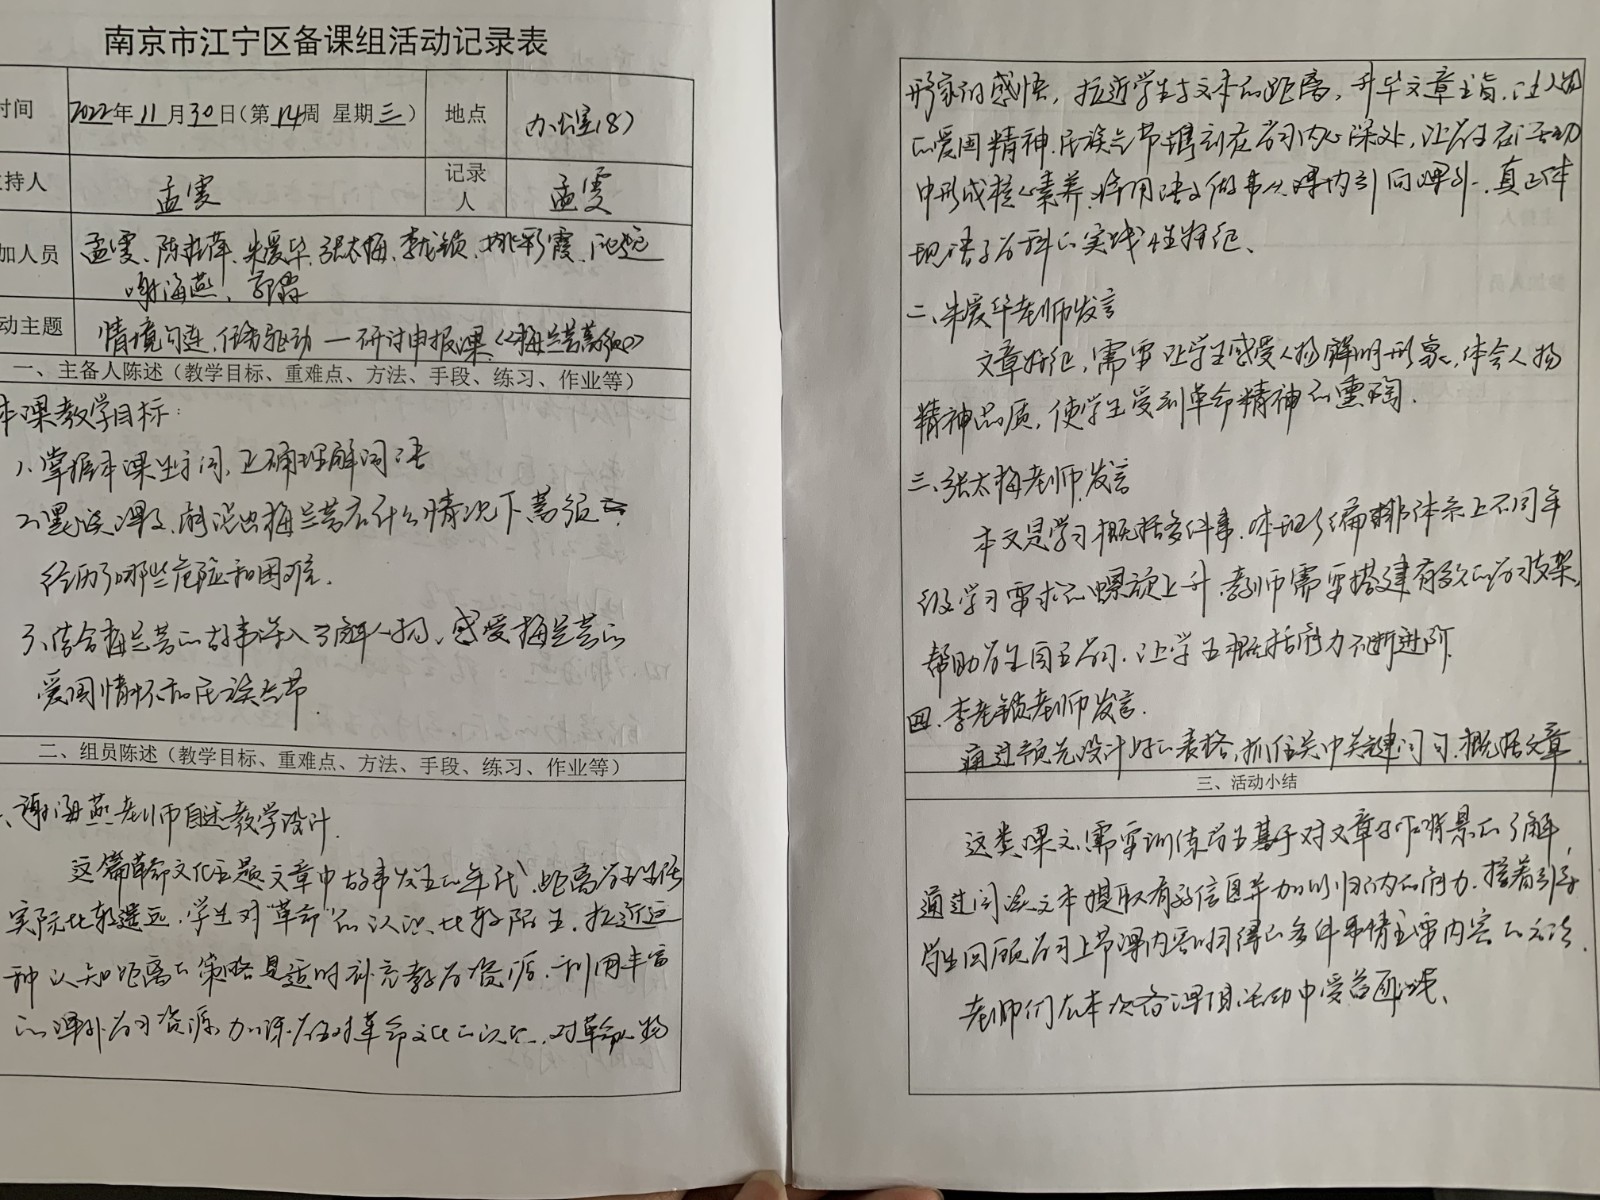 南京市江宁区备课组活动记录表
时间 2022年11月30日(第14周 星期三) 地点 办公室(8)
主持人 孟雯 记录人 孟雯
加人员 孟雯、陈桂萍、朱爱华、张太梅、李龙锁、姚彩霞
谢海燕、郭霖
动主题 情境勾连、任务驱动—研讨申报课《梅兰芳蓄须》
一、主备人陈述（教学目标、重难点、方法、手段、练习、作业等）
本课教学目标：
1、掌握本课生字词，正确理解词语
2、默读课文，能说出梅兰芳在什么情况下蓄须
经历了哪些危险和困难.
3、结合梅兰芳的故事深入了解人物，感受梅兰芳的
爱国情怀和民族气节.
二、组员陈述（教学目标、重难点、方法、手段、练习、作业等）
、谢海燕老师自述教学设计.
这篇革命文化主题文章中故事发生的年代，距离学生生活
实际比较遥远，学生对“革命”的认识比较陌生，拉近这
种认知距离的策略是适时补充教学资源，利用丰富
的课外学习资源，加深学生对革命文化的认识，对革命人物
形象的感悟，拉近学生与文本的距离，升华文章主旨，让人物
的爱国精神、民族气节镌刻在学习内心深处，让学生在活动
中形成核心素养，将用语文做事从课内引向课外，真正体
现语文学科的实践性特征、
二、朱爱华老师发言
文章特征，需要让学生感受人物鲜明形象，体会人物
精神品质，使学生受到革命精神的熏陶.
三、张太梅老师发言
本文是学习概括多件事，体现了编排体系上不同年
级学习要求的螺旋上升，教师需要搭建有效的学习支架，
帮助学生自主学习，让学生概括能力不断进阶.
四、李龙锁老师发言.
通过预先设计好的表格，抓住关中关键词句，概括文章.
三、活动小结
这类课文，需要训练学生基于对文章写作背景的了解，
通过阅读文本提取有效信息并加以归纳的能力，接着引导
学生回顾学习上节课内容时习得的多件事情主要内容的方法.
老师们在本次备课组活动中受益匪浅、